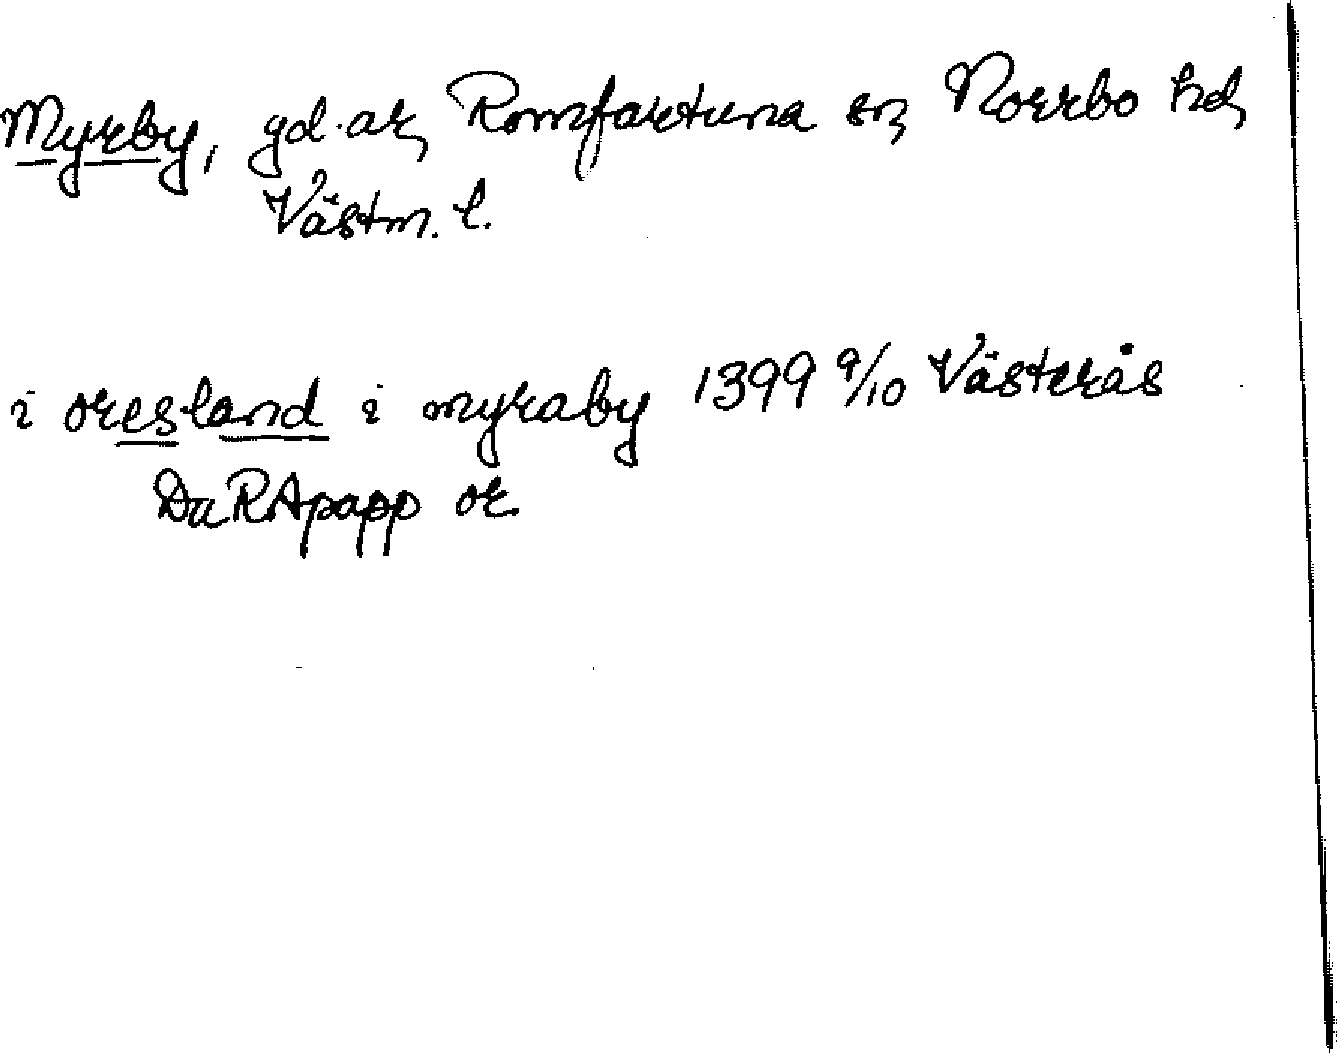 Myrby, gd. ar, Romfartuna sn, Norrbo hd,
Västm. l.
i øresland i myraby 1399 9/10 Västerås
DaRApapp or.